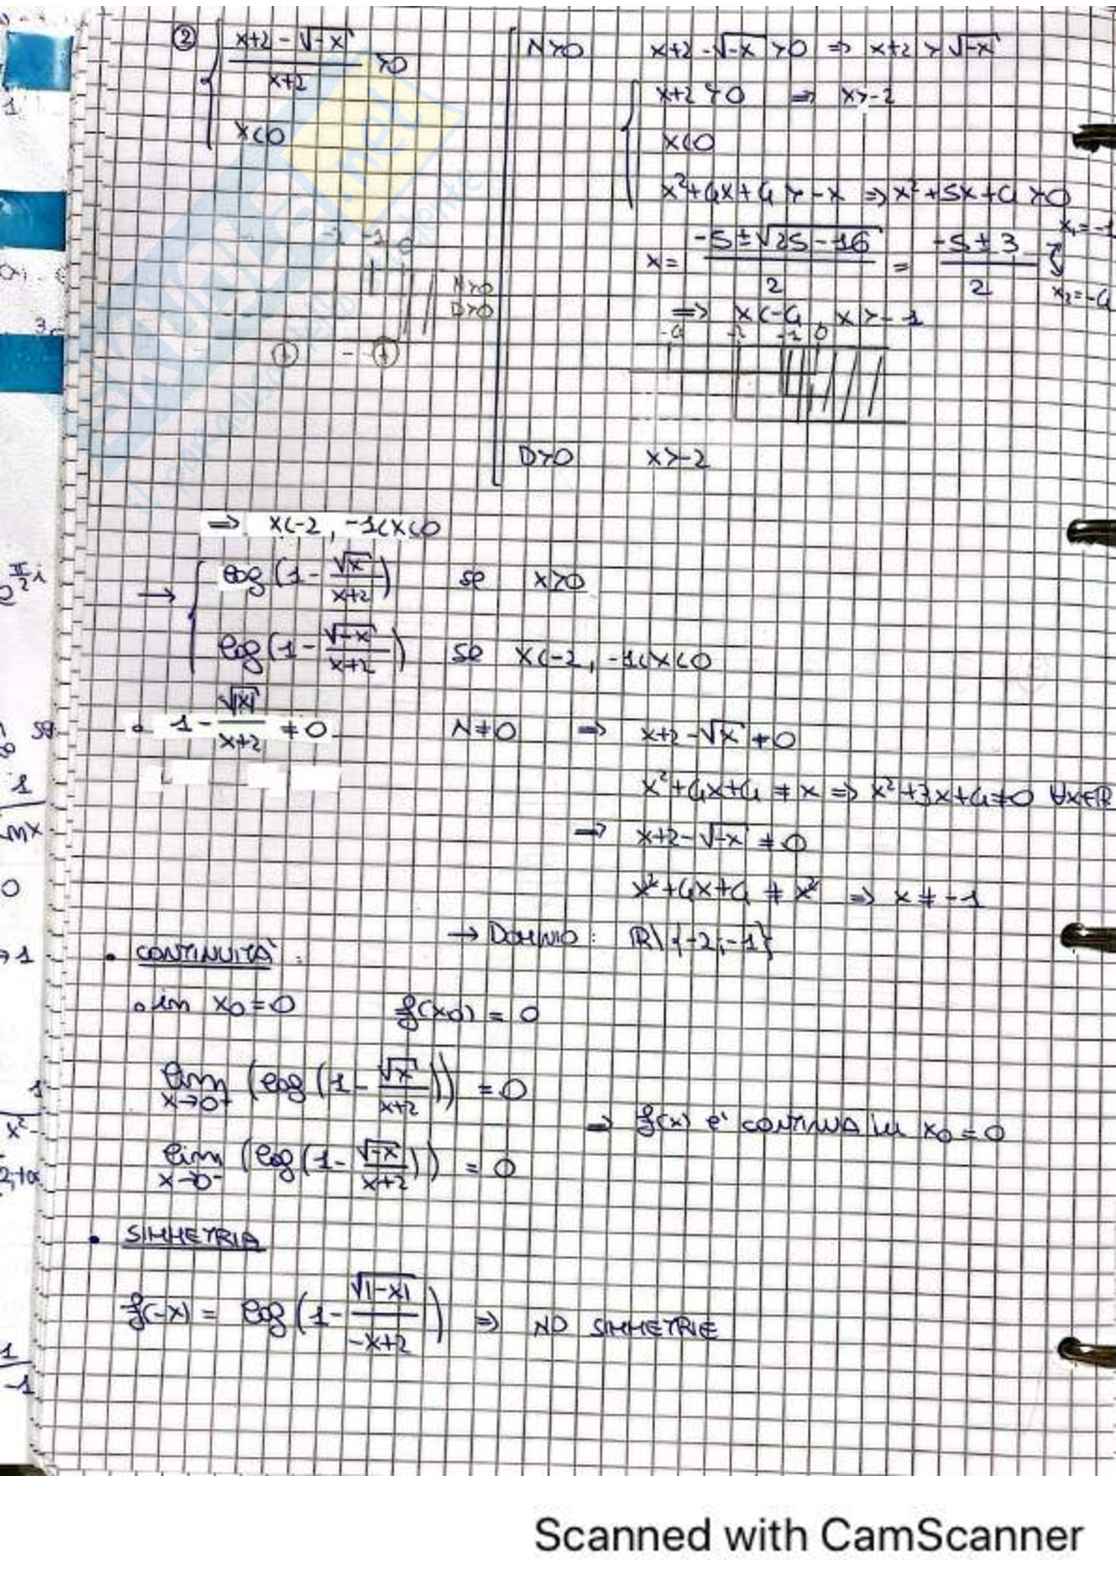 ② { (x+2-√-x)/(x+2) >0
x<0
N>0 x+2-√-x >0 ⇒ x+2 > √-x
{ x+2>0 ⇒ x>-2
x<0
x²+4x+4 > -x ⇒ x²+5x+4 >0
x = (-5±√25-16)/2 = (-5±3)/2 x₁=-1 x₂=-4
⇒ x<-4, x>-1
-4 -2 -1 0
-2 -1 0
N>0
D>0
+ - +
D>0 x>-2
⇒ x<-2, -1<x<0
→ { log(1-√x/(x+2)) se x≥0
log(1-√-x/(x+2)) se x<-2, -1<x<0
∘ 1-√|x|/(x+2) ≠0 N≠0 ⇒ x+2-√x ≠0
x²+4x+4 ≠ x ⇒ x²+3x+4≠0 ∀x∈R
⇒ x+2-√-x ≠0
x²+4x+4 ≠ x² ⇒ x≠-1
→ DOMINIO: R\{-2;-1}
• CONTINUITÀ:
∘ in x0=0 f(x0)=0
lim x→0⁺ (log(1-√x/(x+2))) =0
⇒ f(x) è CONTINUA IN x0=0
lim x→0⁻ (log(1-√-x/(x+2))) =0
• SIMMETRIA
f(-x) = log(1-√|-x|/(-x+2)) ⇒ NO SIMMETRIE
Scanned with CamScanner